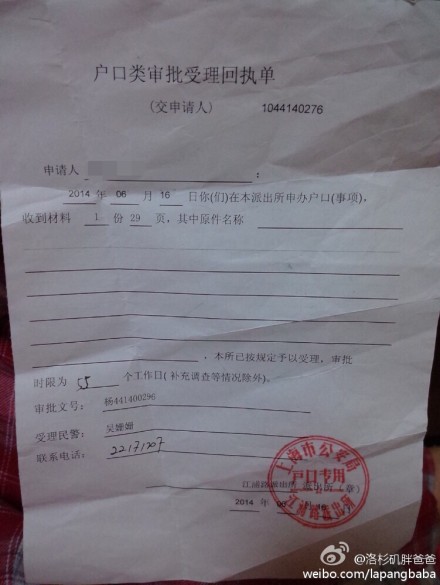 户口类审批受理回执单
(交申请人) 1044140276
申请人 :
2014 年 06 月 16 日你(们)在本派出所申办户口(事项)。
收到材料 1 份 29 页，其中原件名称
. 本所已按规定予以受理，审批
时限为 55 个工作日(补充调查等情况除外)。
审批文号: 杨441400296
受理民警: 吴姗姗
联系电话: 22171707
上海市公安局
户口专用
江浦路派出所(章)
2014 年 06 16
@洛杉矶胖爸爸
weibo.com/lapangbaba